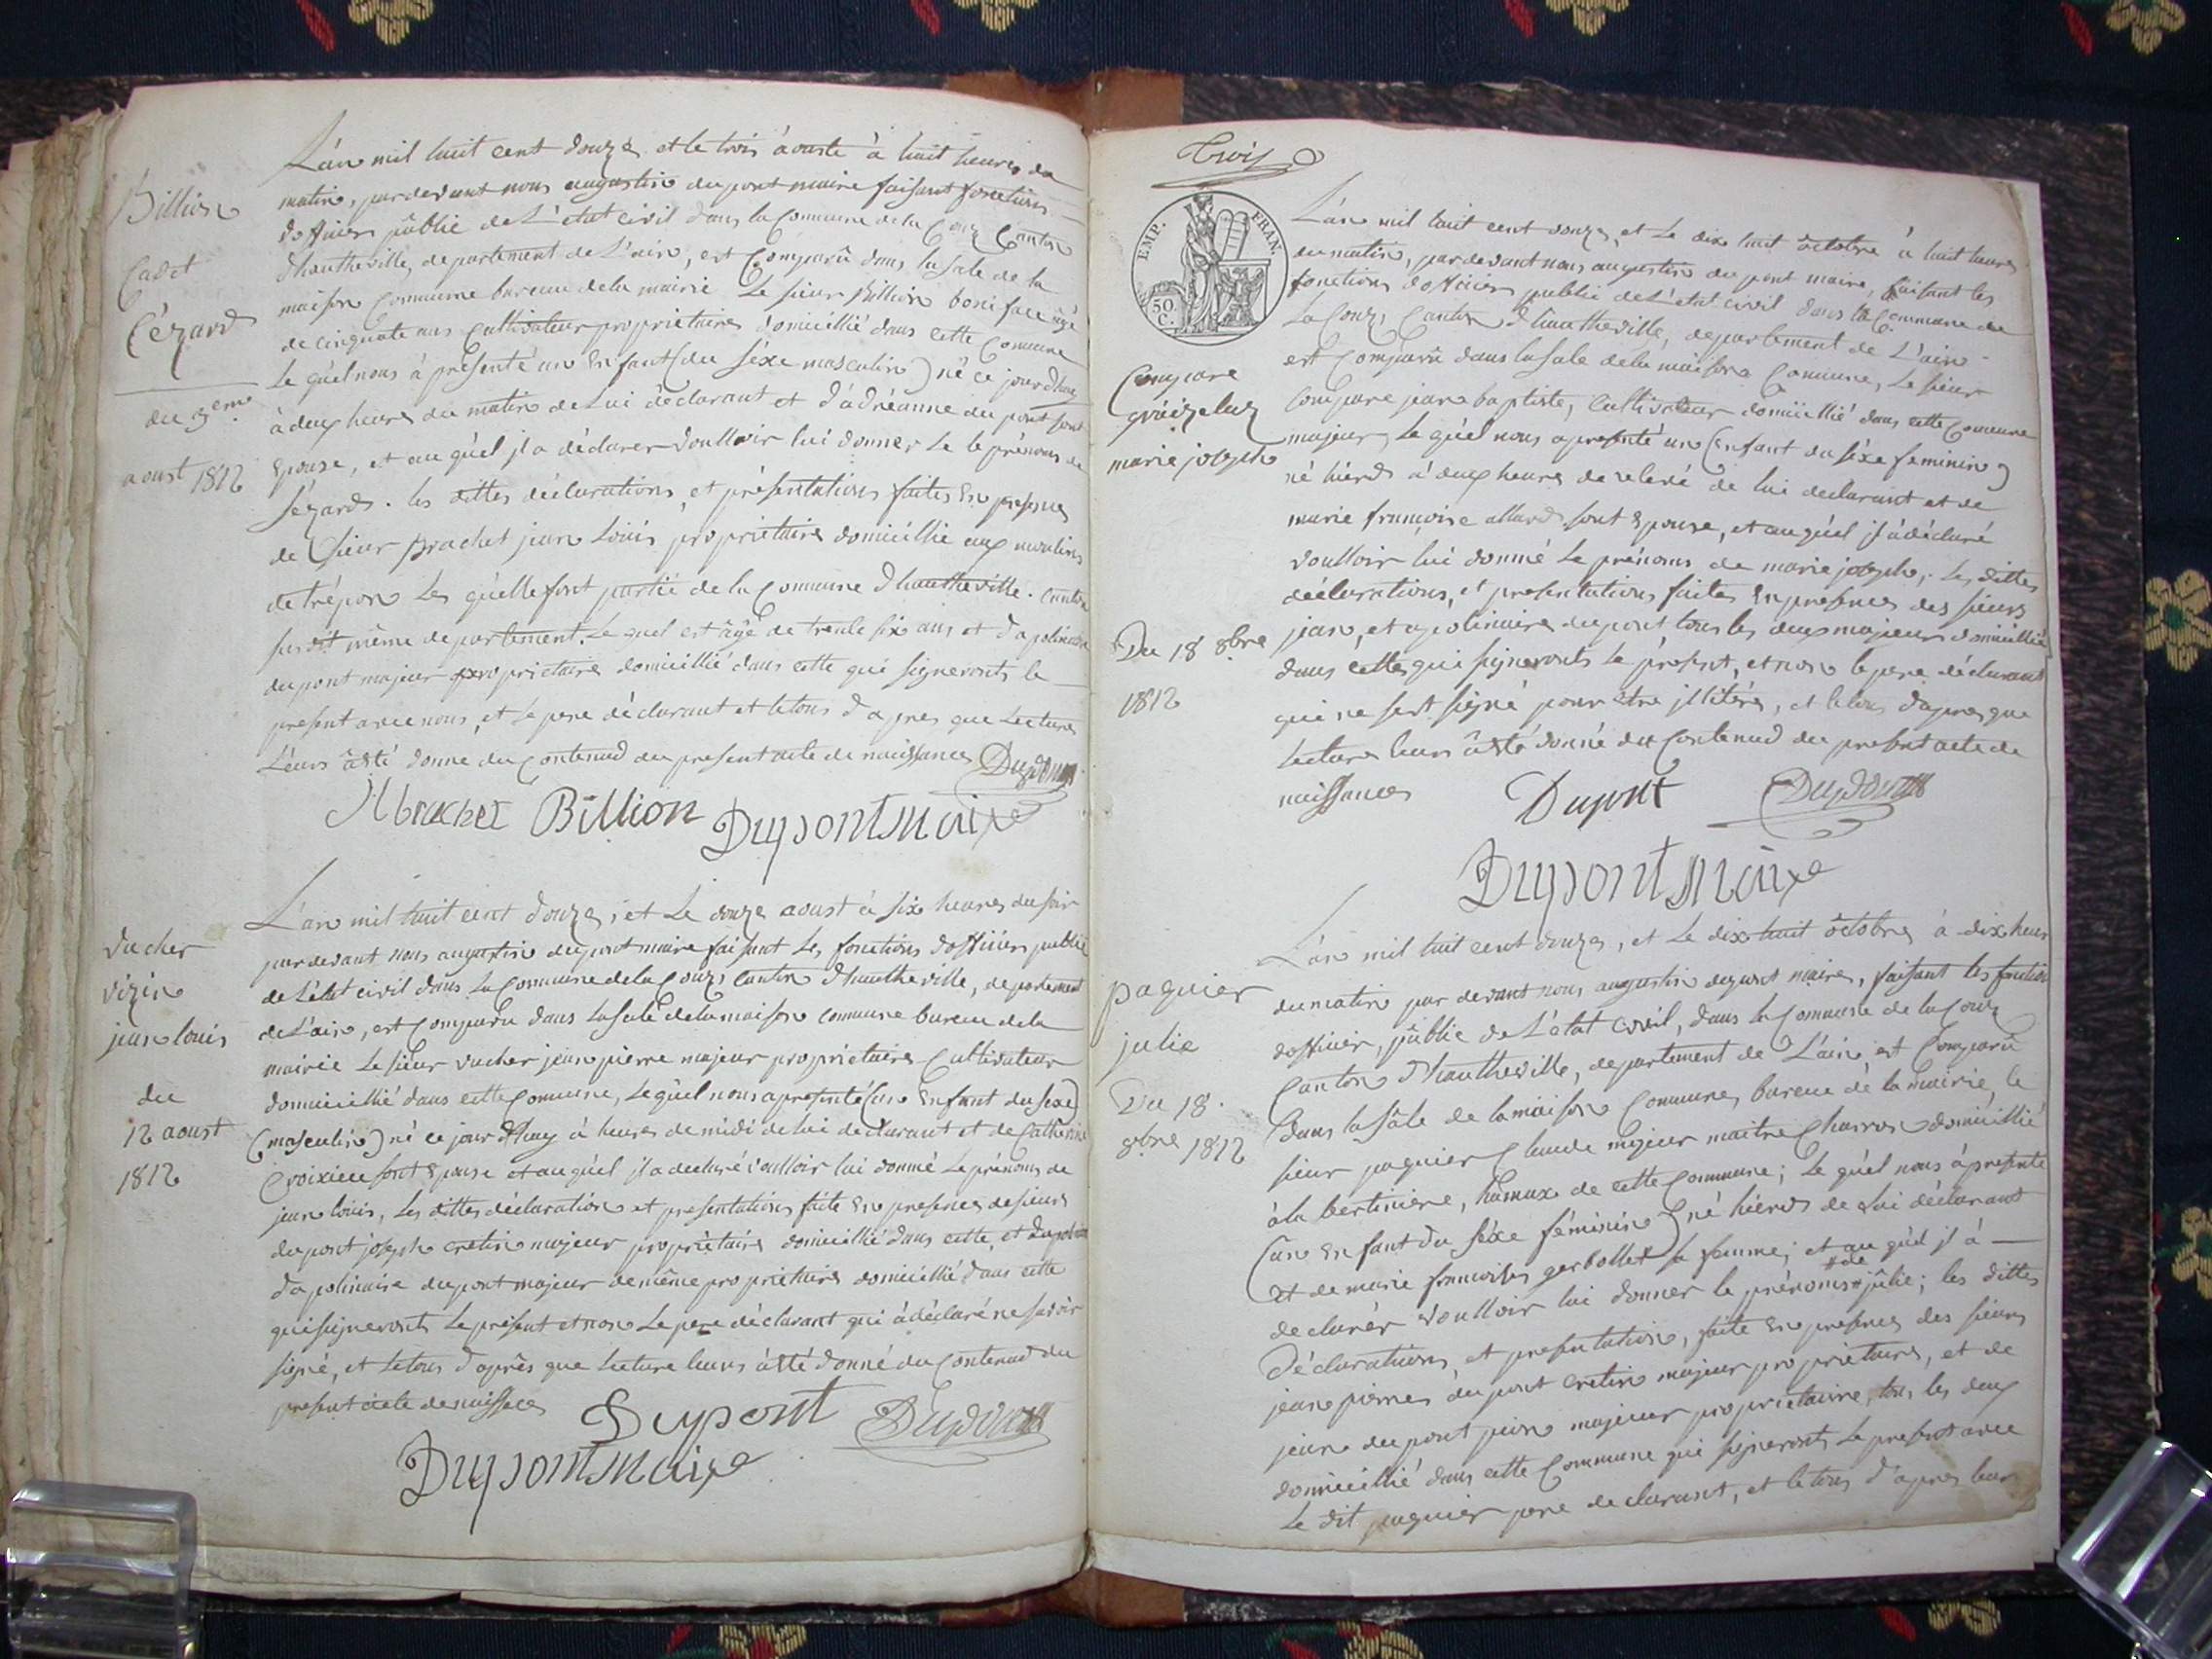 Billion
Cadet
Cézard
du 3eme
aoust 1812
L'an mil huit cent douze et le trois àouste à huit heures du
matin, pardevant nous augustin dupont maire faisant fonctions
dofficier pûblic de L'état civil dans la Commune de la Couz Canton
dhautheville, departement de L'ain, est Comparû dans la sale de la
maison Commune bureau dela mairie Le sieur Billion boniface âgé
de cinquate ans Cultivateur proprietaire domicillié dans cette Comune
Le qu'el nous à présenté un Enfant (du séxe masculin) né ce jour dhuy
à deux heures du matin de Lui déclarant et d'àdréanne du pont sont
Epouse, et au qu'el jl a déclarer voulloir lui donner Le le prénoms de
Sézard. les dittes déclarations et présentations faites En presences
de Sieur Brachet jean Loûis, propriétaire domicillié aux moulins
de trépon Les qu'elle font partié de la Commune dhautheville. Canton
susdit même departement. Le quel est âgé de trente six ans et d'apolinaire
dupont majeur proprietaire domicillié dans cette qui signeronts le
present avec nous, et Le pere déclarant et letous d'apres que Lecture
Léurs âété donné du Contenud du present acte de naissances Dupont
Jlbrachet Billion Dupont Maire
vucher
vizin
jean louis
du
12 aoust
1812
L'an mil huit cent douze, et Le douze aoust à six heures du soir
pardevant nous augustin dupont maire faisant Les fonctions dofficier public
de L'état civil dans La Commune dela Couz, canton dhautheville, departement
de L'ain, est Comparu dans La sale dela maison commune bureau dela
mairie Le sieur vucher jean pierre majeur proprietaire Cultivateur
domicillié dans cette Comune, Le qu'el nous à presenté (un Enfant du sexe)
(masculin) né ce jour dhuy à heures de midi de lui declarant et de Catherine
Croixieu sont Epouse et au qu'el jl a declaré voulloir lui donné Le prénoms de
jean loûis, Les dittes déclaration et presentations faite En presences de sieurs
dupont joseph cretin majeur propriètaire domicillié dans cette, et
d'apolinaire dupont majeur de même proprietaire domicillié dans cette
qui signeronts Le présent et non Le pere déclarant qui à déclaré ne savoir
signé, et Letous d'après que Lecture leurs àété donné du Contenud du
present acte de naissces
Dupont Dupont
Dupont Maire
Trois
EMP. FRAN.
50
C.
Compare
gràizeluz
marie joseph
Du 18 8bre
1812
L'an mil huit cent douze, et Le dix huit òctobre à huit heures
du matin, par devant nous augustin du pont maire, faisant les
fonctions dofficier public de L'état civil dans la Commune de
La Couz, Canton dhautheville, departement de L'ain
est Comparû dans la sale dela maison Comune, Le sieur
Compare jean baptiste, Cultivateur domicillié dans cette Comune
majeur, Le qu'el nous a presenté un (Enfant du séxe feminin)
né hiérd à deux heures de relevé de lui declarant et de
marie françoise allard sont Epouse, et au qu'el jl àdéclaré
voulloir lui donné Le prénoms de marie joseph, Les dittes
déclarations, et presentations faites En presences des sieurs
jean, et apolinaire dupont, tous les deux majeur domicillié
dans cette qui signeronts Le présent, et non le pere déclarant
qui ne sest signé pour être jllitéré, et le tous dapres que
Lecture leurs âété donné du Contenud du present acte de
naissances
Dupont Dupont
Dupont Maire
paquier
julie
Du 18.
8bre 1812
L'an mil huit cent douze, et Le dix huit òctobre à dix heur
du matin par devant nous augustin dupont maire, faisant les fonction
dofficier, pûblic de L'état civil, dans la Commune de la Couz
Canton dhautheville, departement de L'ain, est Comparû
dans la sâle de la maison Commune, bureau dé la mairie, le
sieur paquier Claude majeur maitre Charron domicillié
à la bertiniere, hâmaux de cette Commune; Le qu'el nous à presenté
(un Enfant du séxe féminin) né hiérd de Lui déclarant
et de marie françoise gerbollet sa femme; et au qu'el jl à
declarér voulloir lui donner le prénoms de jûlie; les dittes
déclarations, et presentation, faite En presence des sieurs
jean pierre dupont cretin majeur proprietaire, et de
jean du pont majeur proprietaire, tous les deux
domicillié dans cette Commune qui signeronts Le present avec
Le dit paquier pere declarant, et letous d'apres leur